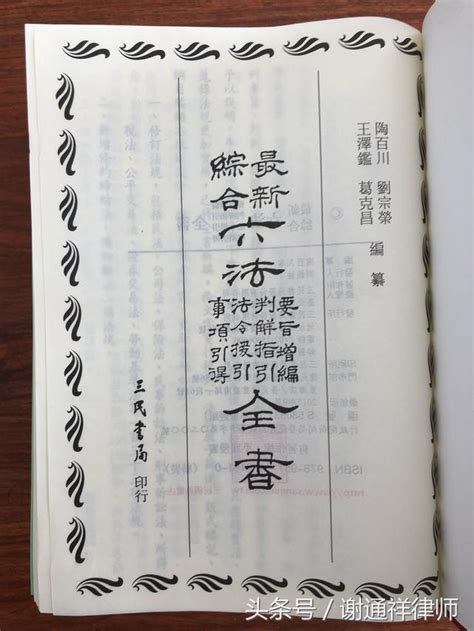 陶百川 劉宗榮
王澤鑑 葛克昌
編纂
最新
綜合
六法
要旨增編
判解指引
法令援引
事項引得
全書
三民書局 印行
头条号／谢通祥律师